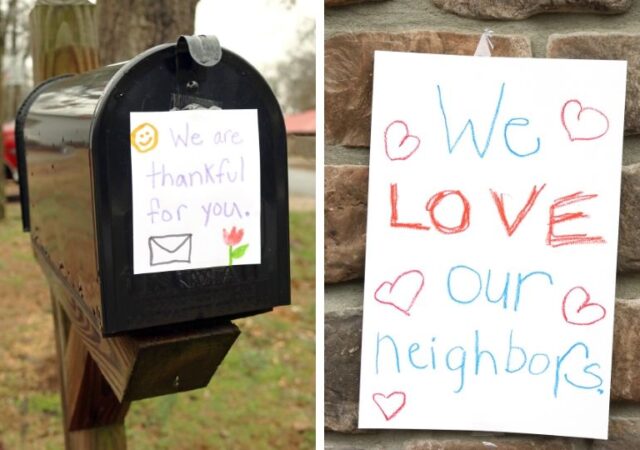 We are
thankful
for you.
We
LOVE
our
neighbors.